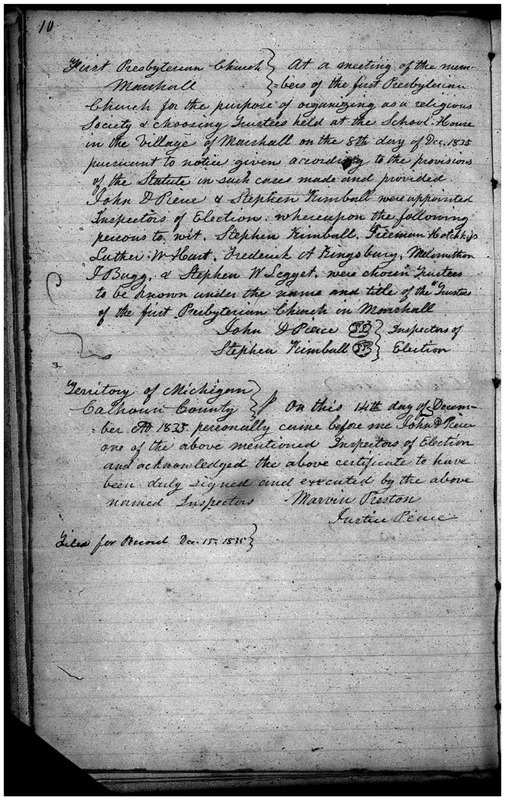 10
First Presbyterian Church } At a meeting of the mem-
Marshall } =bers of the first Presbyterian
Church for the purpose of organizing as a religious
Society & choosing Trustees held at the School House
in the Village of Marshall on the 8th day of Dec. 1835
pursuant to notice given according to the provisions
of the Statute in such cases made and provided
John D Pierce & Stephen Kimball were appointed
Inspectors of Election. whereupon the following
persons to wit. Stephen Kimball, Freeman Hotchkiss
Luther W Hart, Frederick A Kingsbury,
I Bugg, & Stephen W Legget, were chosen Trustees
to be known under the name and title of the "Trustees
of the first Presbyterian Church in Marshall
John D Pierce } Inspectors of
Stephen Kimball } Election
Territory of Michigan }
Calhoun County } On this 14th day of Decem-
=ber AD 1835 personally came before me John D Pierce
one of the above mentioned Inspectors of Election
and acknowledged the above certificate to have
been duly signed and executed by the above
named Inspectors Marvin Preston
Justice Peace
Filed for Record Dec. 15, 1835 }